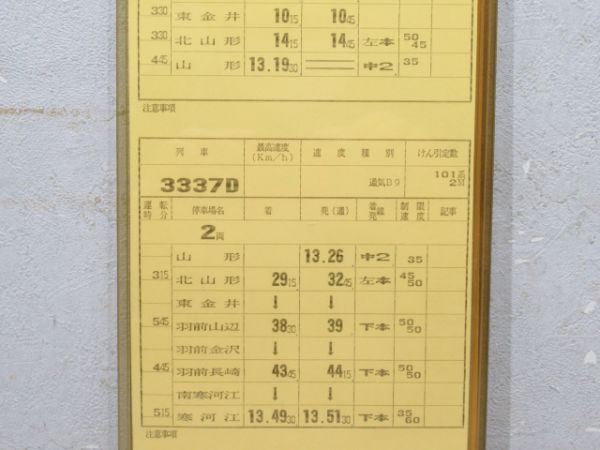 330 東金井 10 15 10 45
330 北山形 14 15 14 45 左本 50 45
445 山形 13.19 30 中2 35
注意事項
列車 最高速度(Km/h) 速度種別 けん引定数
3337D 通気B9 101系 2M
運転時分 停車場名 着 発(通) 着発線 制限速度 記事
2両
山形 13.26 中2 35
315 北山形 29 15 32 45 左本 45 50
東金井 ↓ ↓
545 羽前山辺 38 30 39 下本 50 50
羽前金沢 ↓ ↓
445 羽前長崎 43 45 44 15 下本 50 50
南寒河江 ↓ ↓
515 寒河江 13.49 30 13.51 30 下本 35 60
注意事項